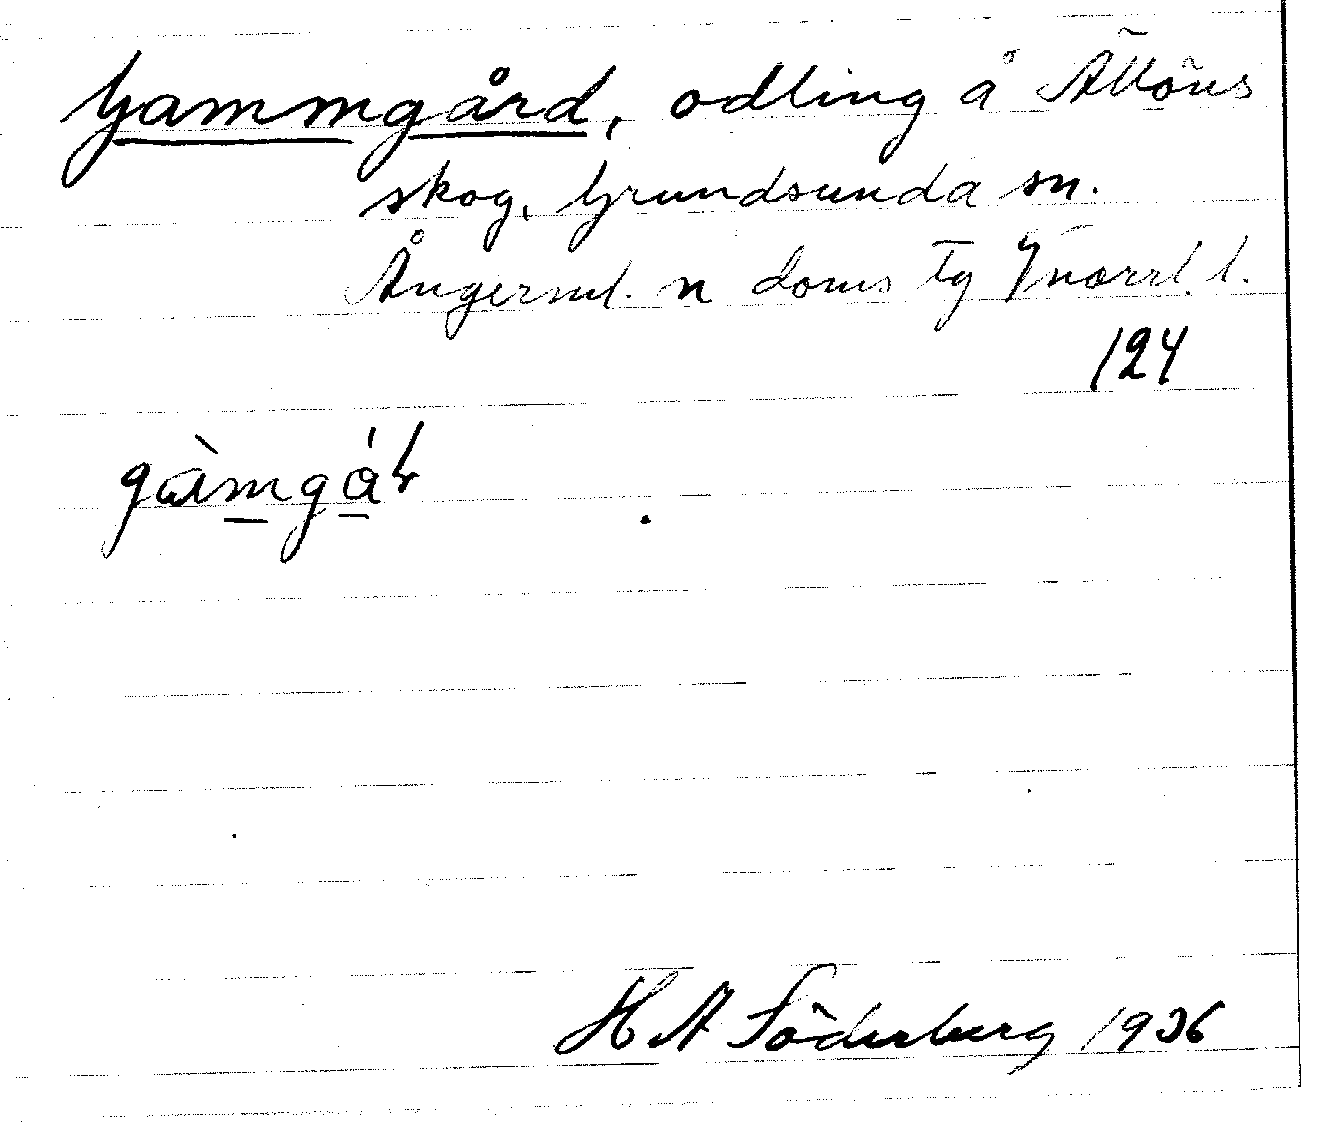 Gammgård, odling å
skog, Grundsunda sn.
Ångerml. n doms tg Vnorrl. l.
124
gàmgáɽ
H A Söderberg 1936